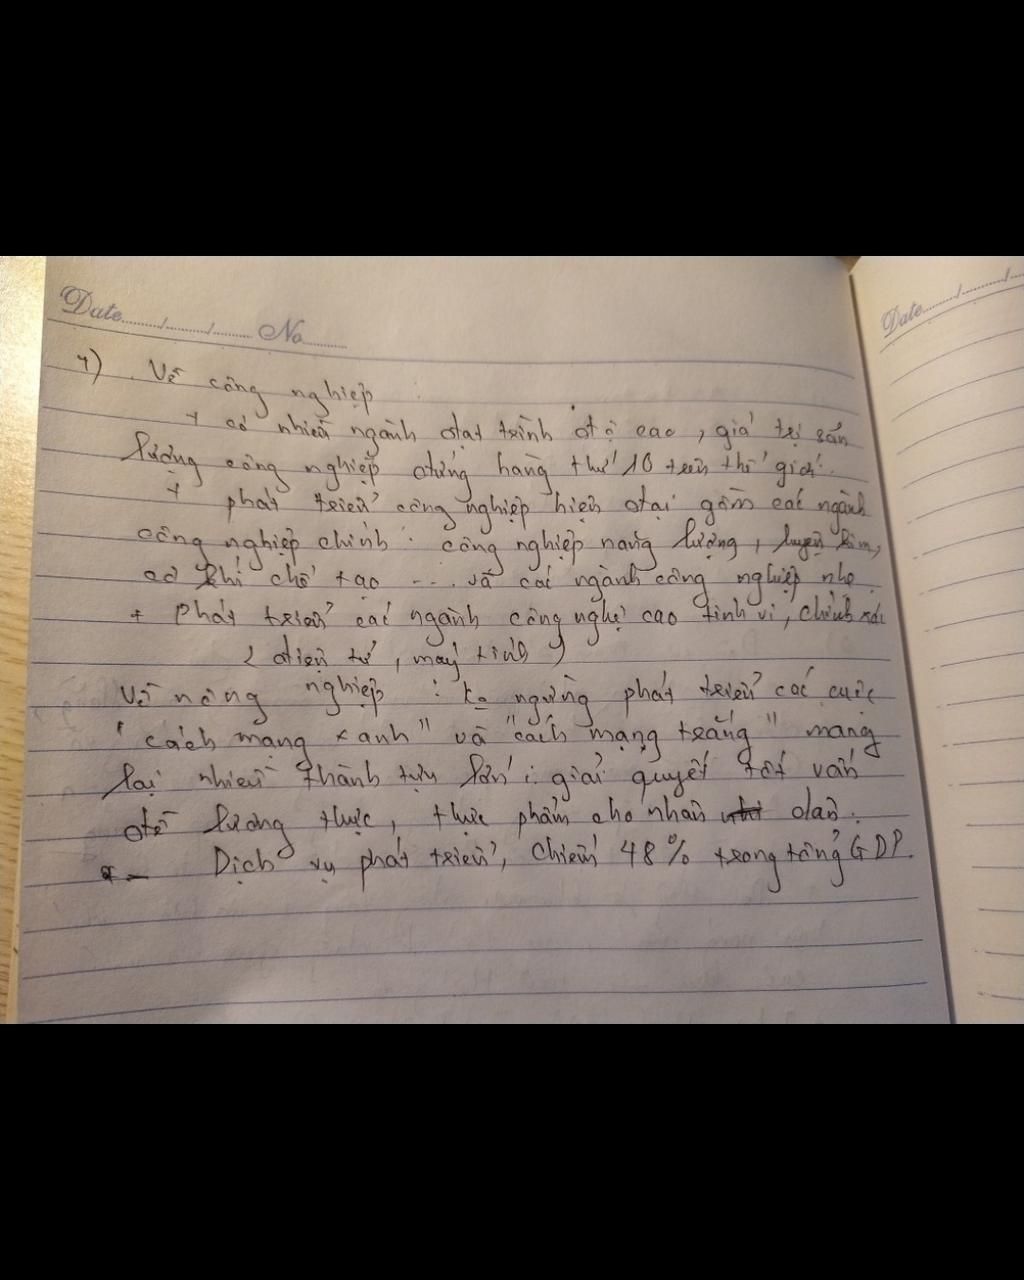 Date......../......../........ No........
Date......../......../...
4) Về công nghiệp
+ có nhiều ngành đạt trình độ cao, giá trị sản
lượng công nghiệp đứng hàng thứ 10 trên thế giới.
+ phát triển công nghiệp hiện đại gồm các ngành
công nghiệp chính: công nghiệp năng lượng, luyện kim,
cơ khí chế tạo .... và các ngành công nghiệp nhẹ
+ Phát triển các ngành công nghệ cao tinh vi, chính xác
( điện tử, máy tính )
Về nông nghiệp : ko ngừng phát triển các cuộc
"cách mạng xanh" và "cách mạng trắng" mang
lại nhiều thành tựu lớn: giải quyết tốt vấn
đề lương thực, thực phẩm cho nhân dân.
- Dịch vụ phát triển, chiếm 48% trong tổng GDP.